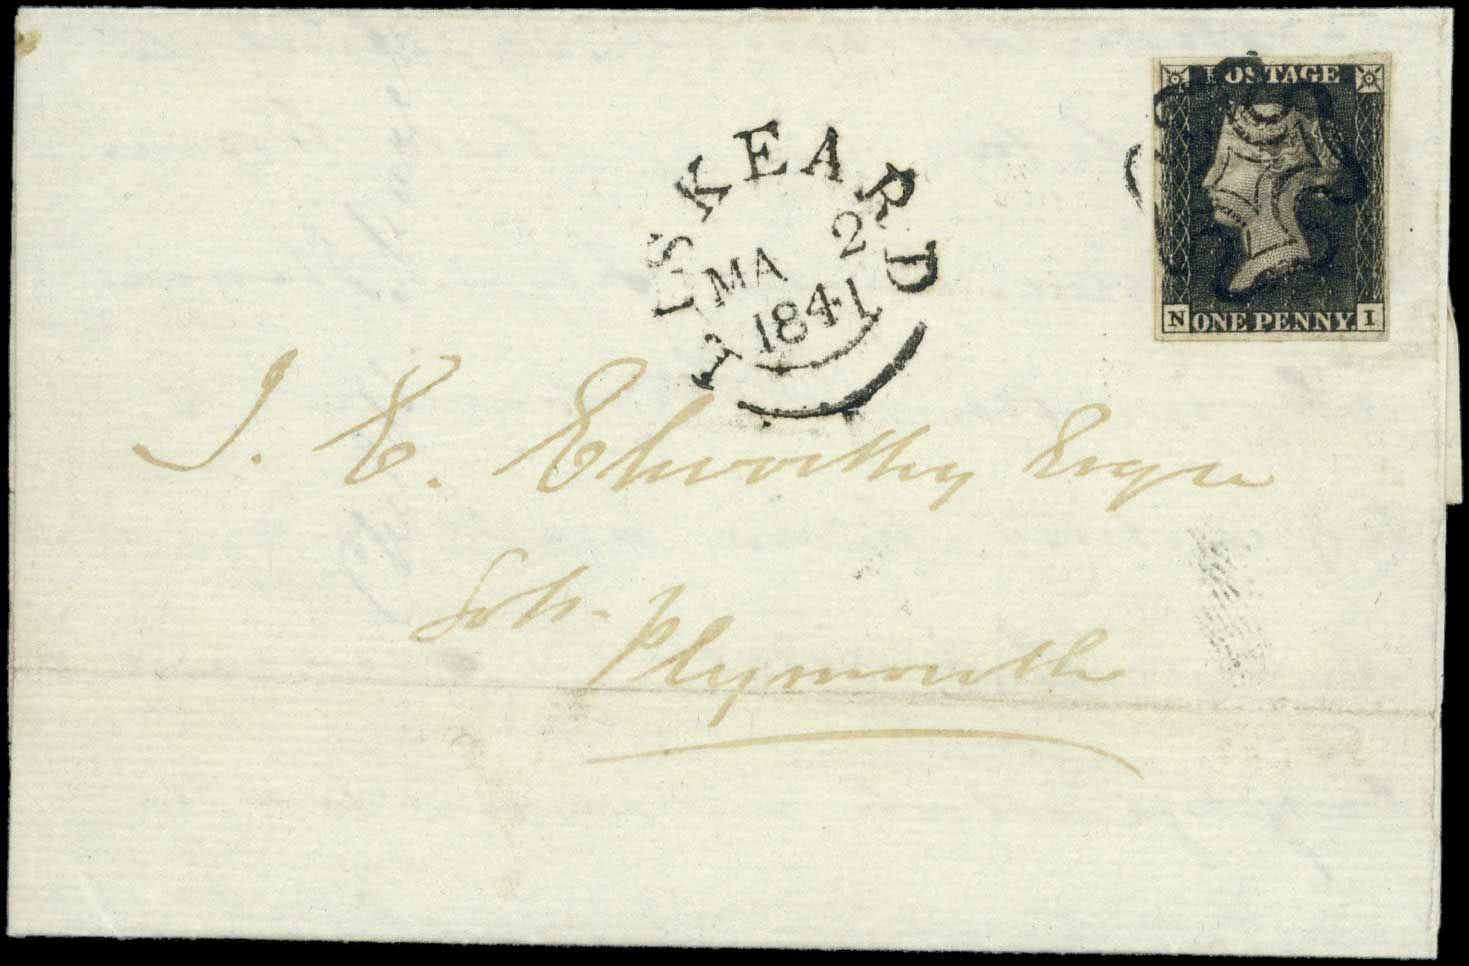 POSTAGE
N ONE PENNY. I
LISKEARD
MA 2
1841
J. E. Elworthy Esqre
Solr.
Plymouth